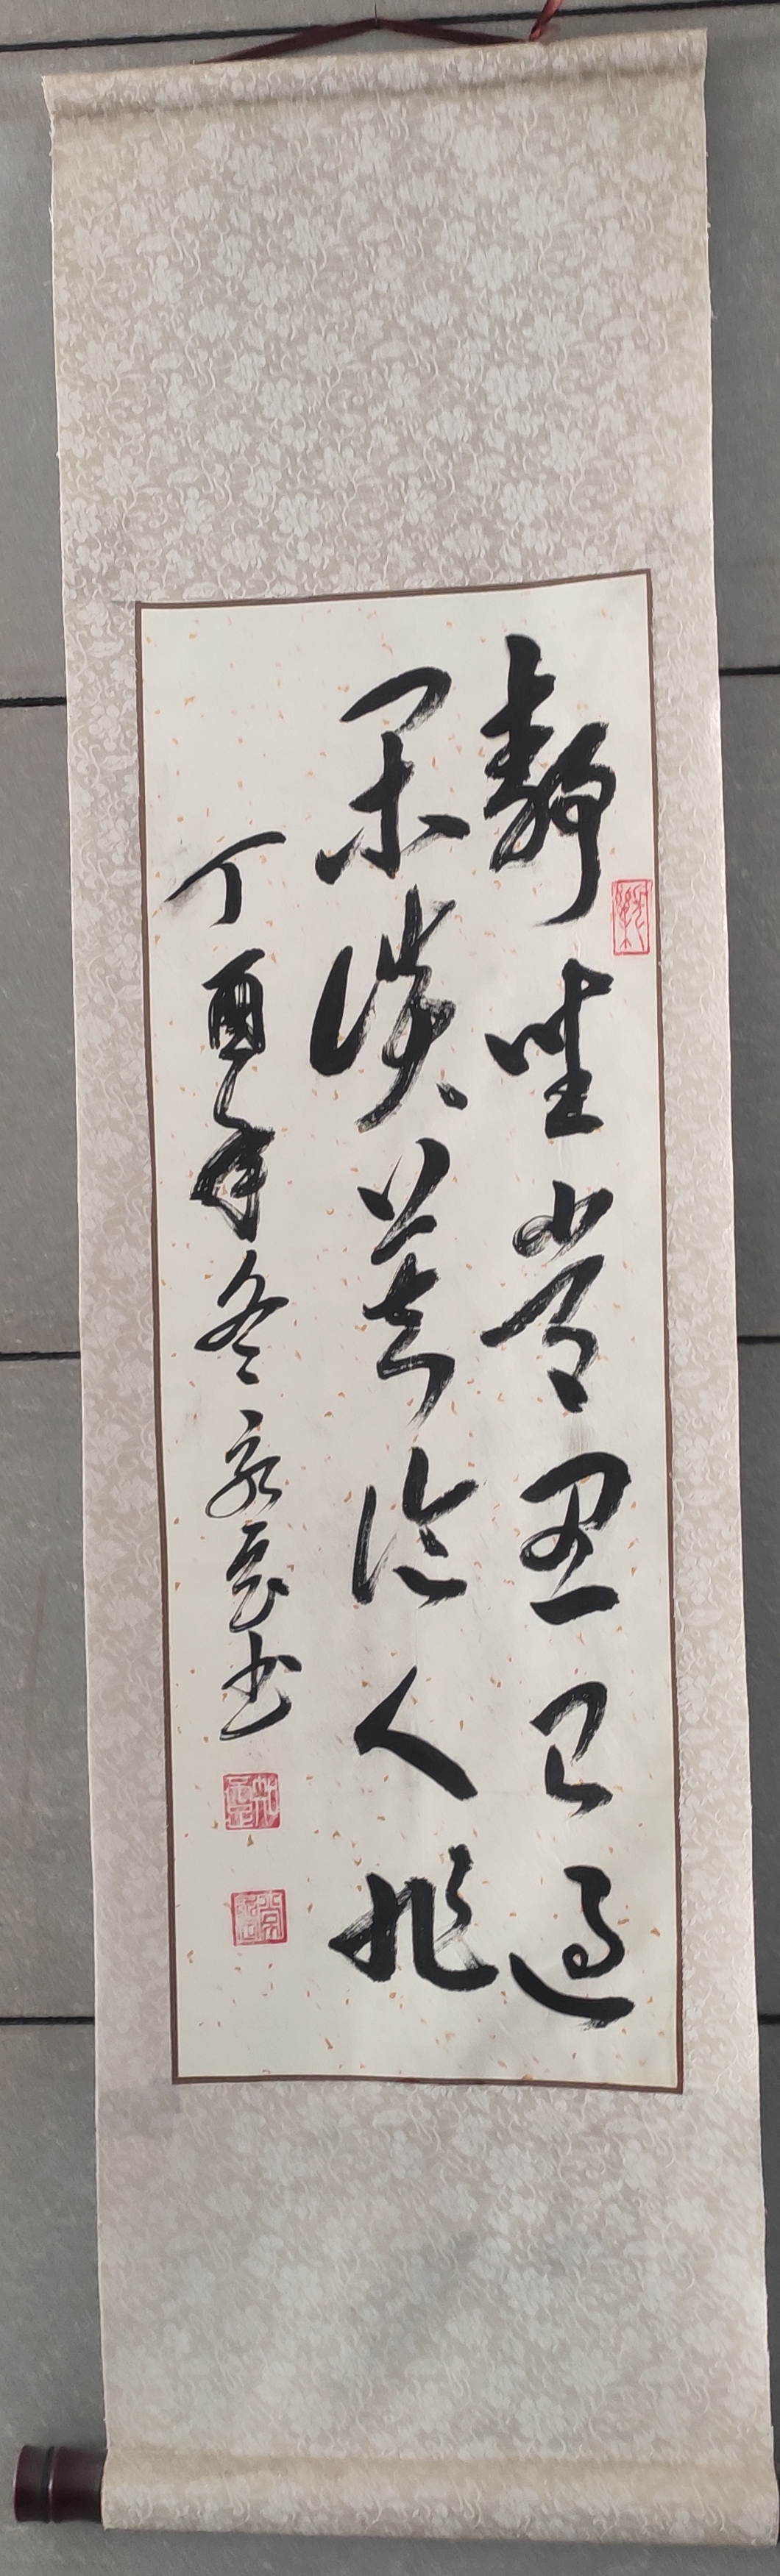 静坐常思己过
闲谈莫论人非
丁酉年冬
书